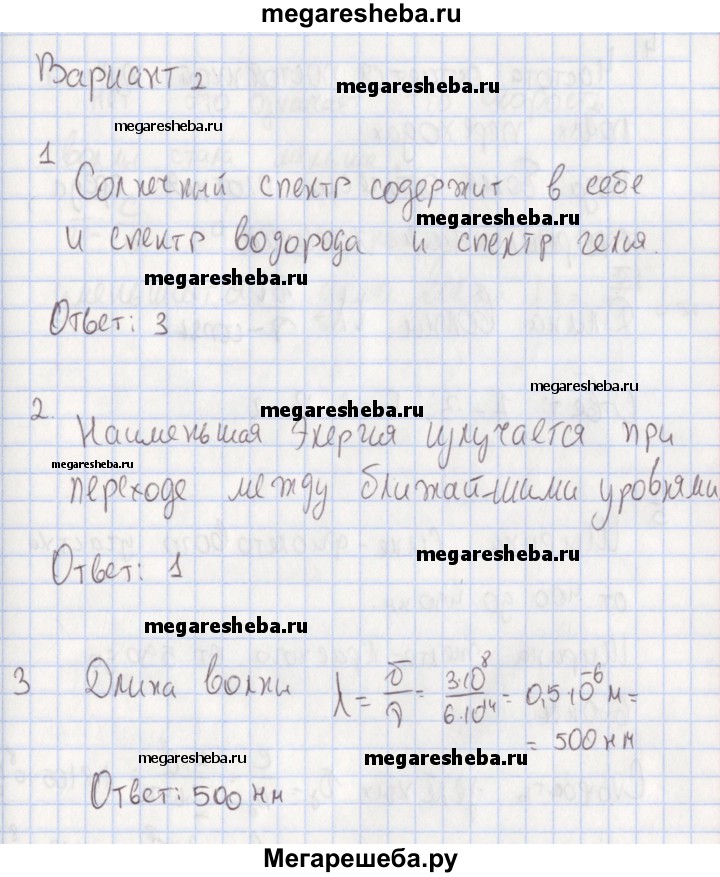 megaresheba.ru
Вариант 2
megaresheba.ru
megaresheba.ru
1 Солнечный спектр содержит в себе
megaresheba.ru
и спектр водорода и спектр гелия.
megaresheba.ru
Ответ: 3
megaresheba.ru
2. megaresheba.ru
Наименьшая энергия излучается при
megaresheba.ru
переходе между ближайшими уровнями
megaresheba.ru
Ответ: 1
megaresheba.ru
3 Длина волны λ = υ/ν = 3·10^8/6·10^14 = 0,5·10^-6 м =
= 500 нм
megaresheba.ru
megaresheba.ru
Ответ: 500 нм
Мегарешеба.ру